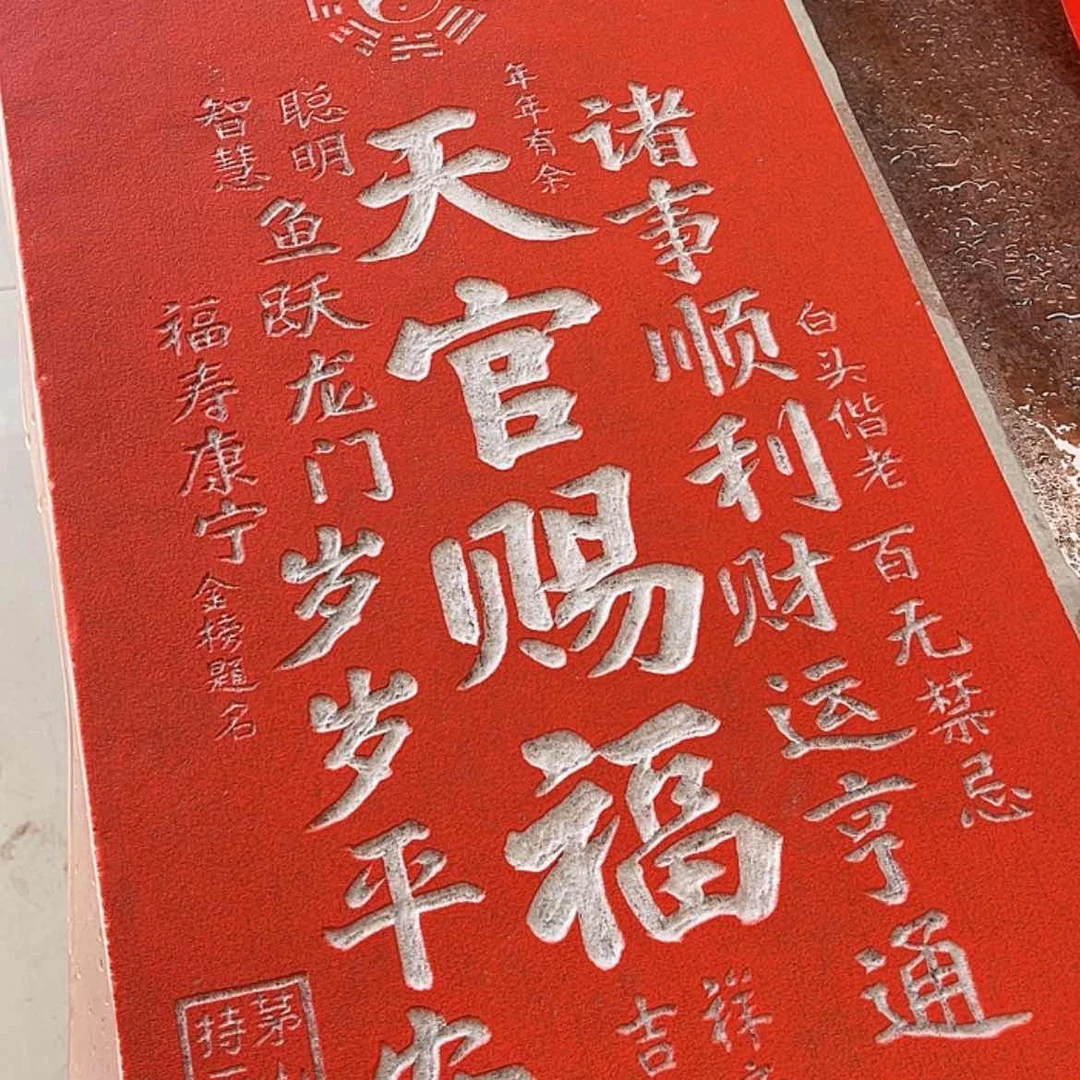 白头偕老
百无禁忌
诸事顺利财运亨通
年年有余
天官赐福
吉
祥
聪明
智慧
鱼跃龙门
岁岁平安
福寿康宁
金榜题名
茅
持